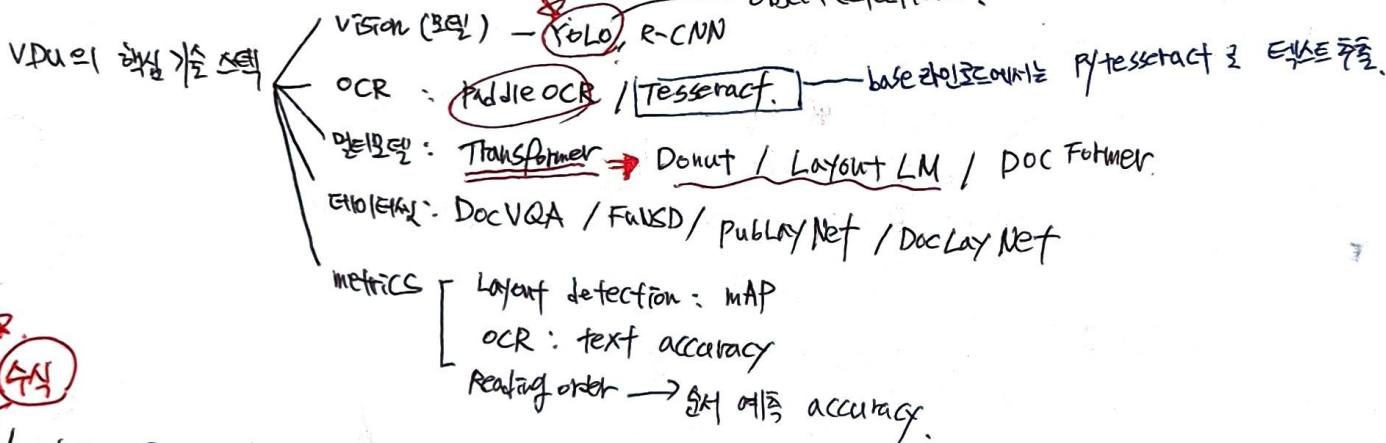 VDU의 핵심 기술 스택
Vision (모델) — YOLO, R-CNN
OCR : Paddle OCR / Tesseract. — base 라인코드에서는 Pytesseract 로 텍스트 추출.
멀티모델 : Transformer → Donut / Layout LM / DOC Former.
데이터셋 : DocVQA / FUNSD / PubLayNet / DocLayNet
metrics
Layout detection : mAP
OCR : text accuracy
Reading order → 순서 예측 accuracy.
수식